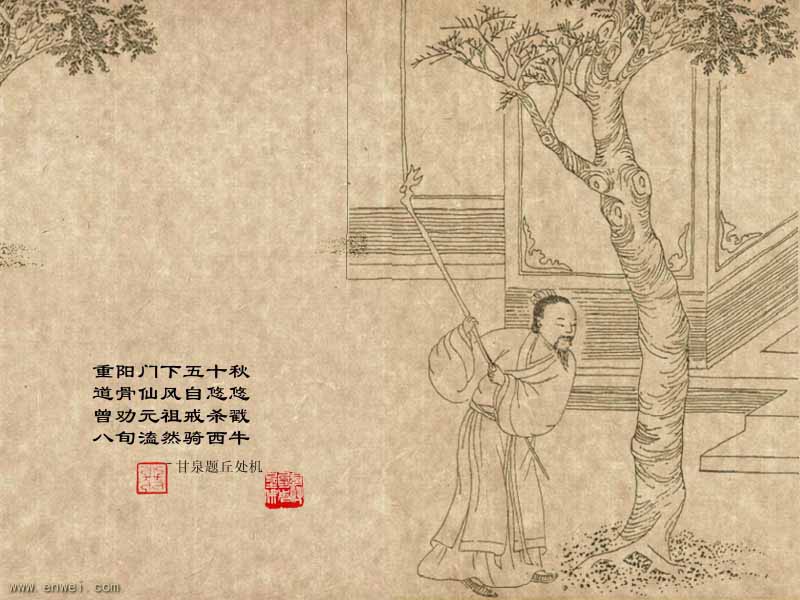 重阳门下五十秋
道骨仙风自悠悠
曾劝元祖戒杀戮
八旬溘然骑西牛
甘泉题丘处机
www.enwei.com